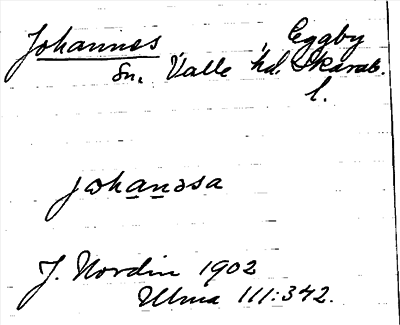 Johannes Eggby
Sn. Valle hd. Skarab.
l.
johanəsa
J. Nordin 1902
Ulma 111:342.